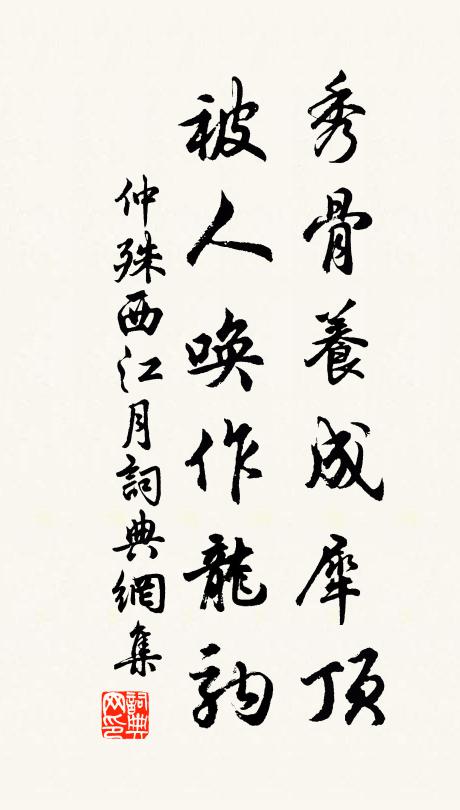 秀骨養成犀頂
被人喚作龍駒
仲殊西江月詞典網集
詞典网印